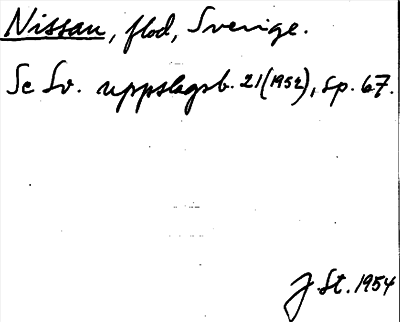 Nissan, flod, Sverige.
Se Sv. uppslagsb. 21(1952), sp. 67.
J. St. 1954